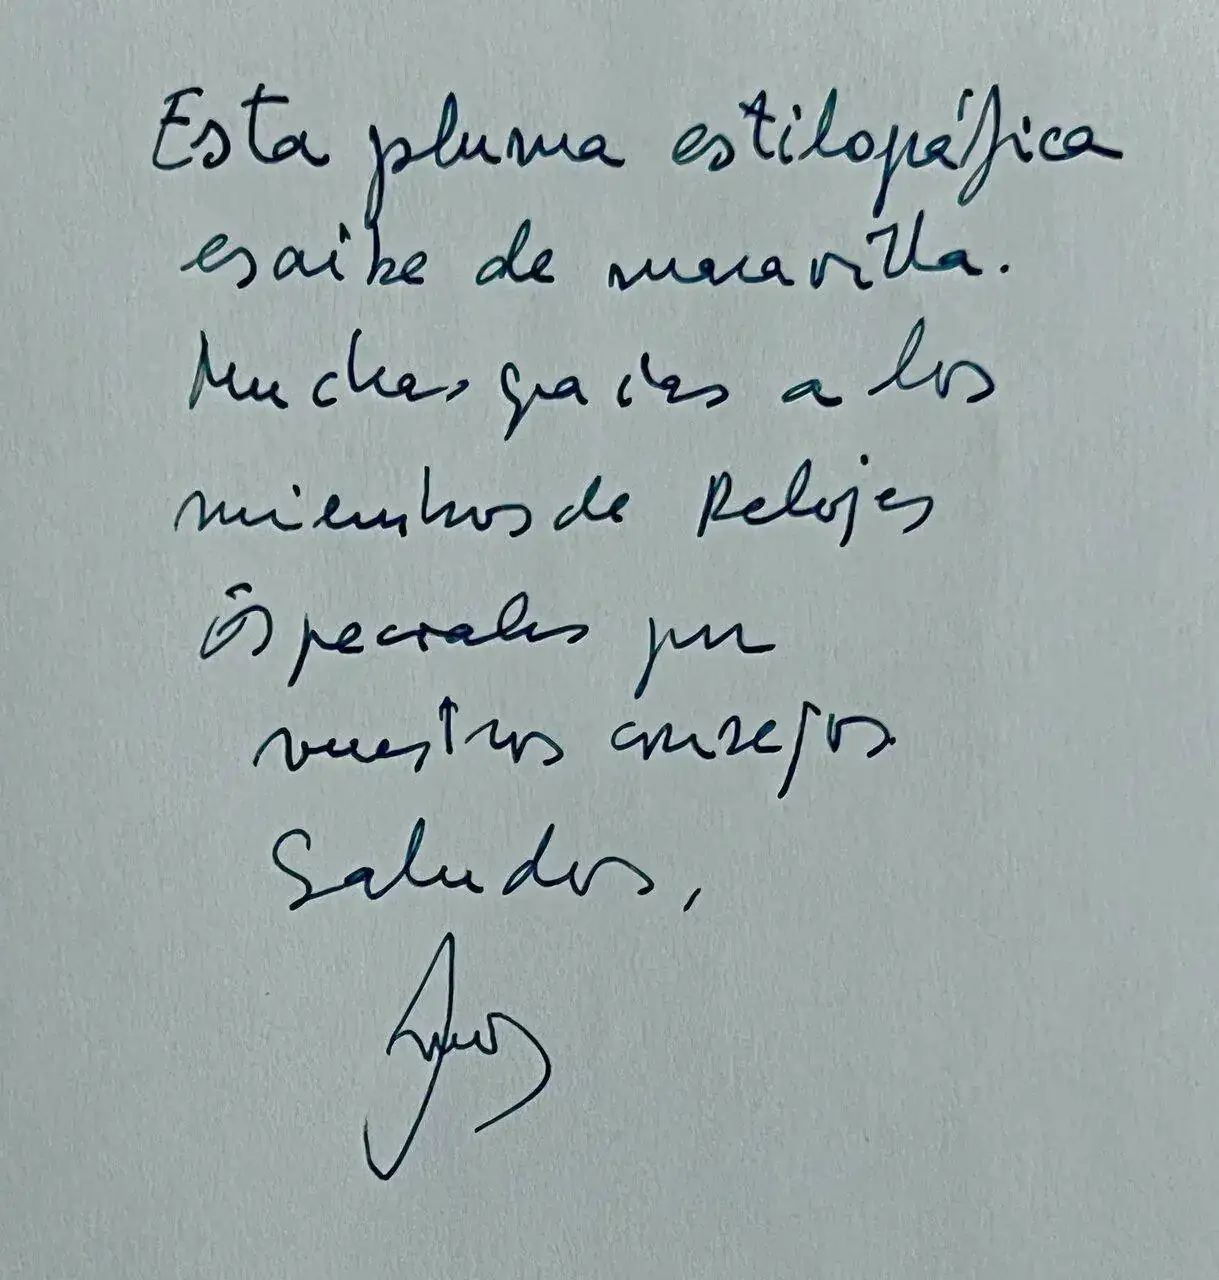 Esta pluma estilográfica
escribe de maravilla.
Muchas gracias a los
miembros de Relojes
Especiales por
vuestros consejos.
Saludos,